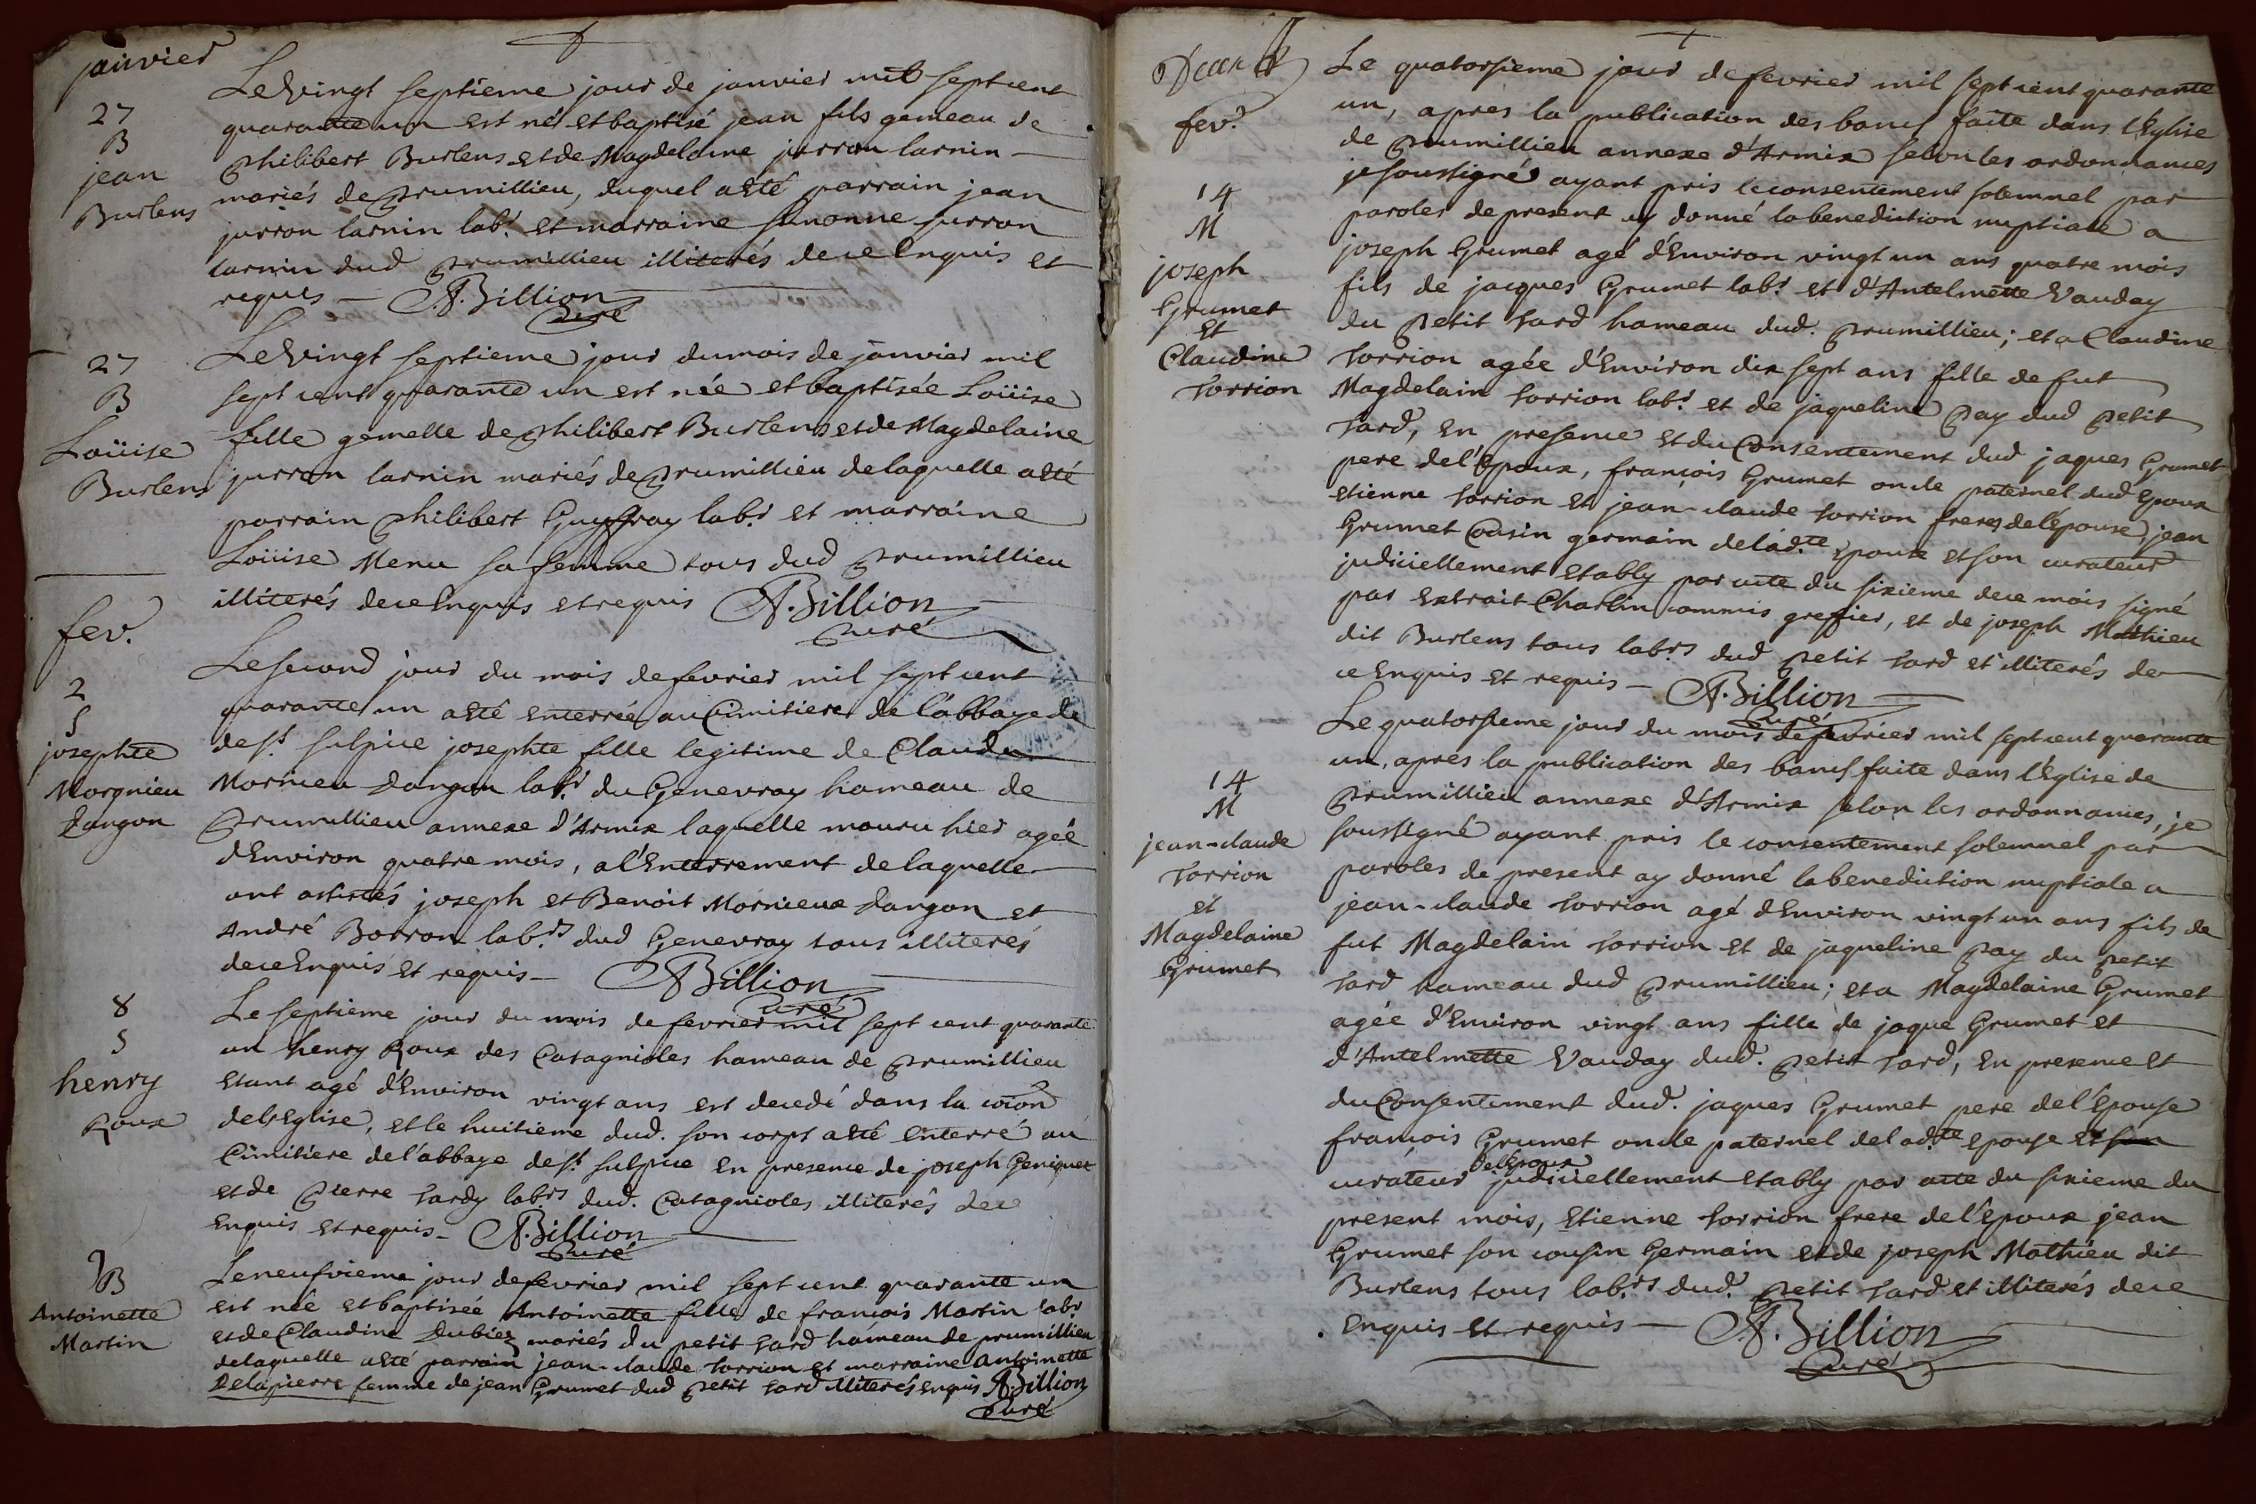 janvier
27
B
jean
Burlens
Le vingt septieme jour de janvier mil sept cent
quarante un est né et baptisé jean fils gemeau de
Philibert Burlens et de Magdelaine jurron larnin
mariés de Prumillieu, duquel a esté parrain jean
jurron larnin lab.r et marraine jurron
larnin dud Prumillieu illiterés de ce Enquis et
requis — A. Billion
Curé
27
B
Loüise
Burlens
Le vingt septieme jour du mois de janvier mil
sept cent quarante un est née et baptisée Loüise
fille gemelle de Philibert Burlens et de Magdelaine
jurron larnin mariés de Prumillieu de laquelle a esté
parrain Philibert Guyffray lab.r et marraine
Loüise Menu sa femme tous dud Prumillieu
illiterés de ce Enquis et requis A. Billion
Curé
fev.
2
S
josephte
Morgnieu
dangon
Le second jour du mois de fevrier mil sept cent
quarante un a esté enterrée au Cimitiere de l'abbaye de
de S.t sulpice josephte fille legitime de Claude
Mornieu dangon lab.r du Genevray hameau de
Prumillieu annexe d'Armix laquelle mouru hier agée
d'Environ quatre mois, a l'Enterrement de laquelle
ont assistés joseph et Benoit Mornieux dangon et
André Borron lab.rs dud Genevray tous illiterés
de ce Enquis et requis — A. Billion
Curé
8
S
henry
Roux
Le septieme jour du mois de fevrier mil sept cent quarante
un henry Roux des Catagnioles hameau de Prumillieu
Etant agé d'Environ vingt ans est decedé dans la coïon
de l'Eglise, et le huitieme dud. son corps a esté Enterré au
Cimitiere de l'abbaye de S.t sulpice En presence de joseph Geniquet
et de Pierre tardy lab.rs dud. Catagnioles illiterés de ce
Enquis et requis — A. Billion
Curé
9
B
Antoinette
Martin
Le neufvieme jour de fevrier mil sept cent quarante un
est née et baptisée Antoinette fille de françois Martin lab.r
et de Claudine Dubiez mariés du petit tard hameau de prumillieu
de laquelle a esté parrain jean-claude torrion et marraine Antoinette
Delapierre femme de jean Grumet dud Petit tard illiterés enquis A. Billion
Curé
fev.r
14
M
joseph
Grumet
et
Claudine
torrion
Le quatorsieme jour de fevrier mil sept cent quarante
un, apres la publication des bancs faite dans l'Eglise
de Prumillieu annexe d'Armix selon les ordonnances
je soussigné ayant pris le consentement solemnel par
paroles de present ay donné la benediction nuptiale a
joseph Grumet agé d'Environ vingt un ans quatre mois
fils de jacques Grumet lab.r et d'Antelmette Vauday
du Petit tard hameau dud. Prumillieu; et a Claudine
torrion agée d'Environ dix sept ans fille de fut
Magdelain torrion lab.r et de jaqueline Pay dud Petit
tard, En presence et du Consentement dud jaques Grumet
pere de l'Epoux, françois Grumet oncle paternel dud Epoux
Etienne torrion et jean-claude torrion freres de l'épouse, jean
Grumet Cousin germain de lad.te Epouse et son curateur
judiciellement Etably par acte du sixieme de ce mois signé
par Extrait Charlin commis greffier, et de joseph Mathieu
dit Burlens tous lab.rs dud Petit tard et illiterés de
ce Enquis et requis — A. Billion
Curé
14
M
jean-claude
torrion
et
Magdelaine
Grumet
Le quatorsieme jour du mois de fevrier mil sept cent quarante
un, apres la publication des bancs faite dans l'Eglise de
Prumillieu annexe d'Armix selon les ordonnances, je
soussigné ayant pris le consentement solemnel par
paroles de present ay donné la benediction nuptiale a
jean-claude torrion agé d'Environ vingt un ans fils de
fut Magdelain torrion et de jaqueline Pay du Petit
tard hameau dud Prumillieu; et a Magdelaine Grumet
agée d'Environ vingt ans fille de jaque Grumet et
d'Antelmette Vauday dud. Petit tard, En presence et
du Consentement dud. jaques Grumet pere de l'Epouse
françois Grumet oncle paternel de lad.te Epouse et son
de l'Epoux
curateur judiciellement Etably par acte du sixieme du
present mois, Etienne torrion frere de l'Epoux jean
Grumet son cousin Germain et de joseph Mathieu dit
Burlens tous lab.rs dud. Petit tard et illiterés de ce
Enquis et requis — A. Billion
Curé